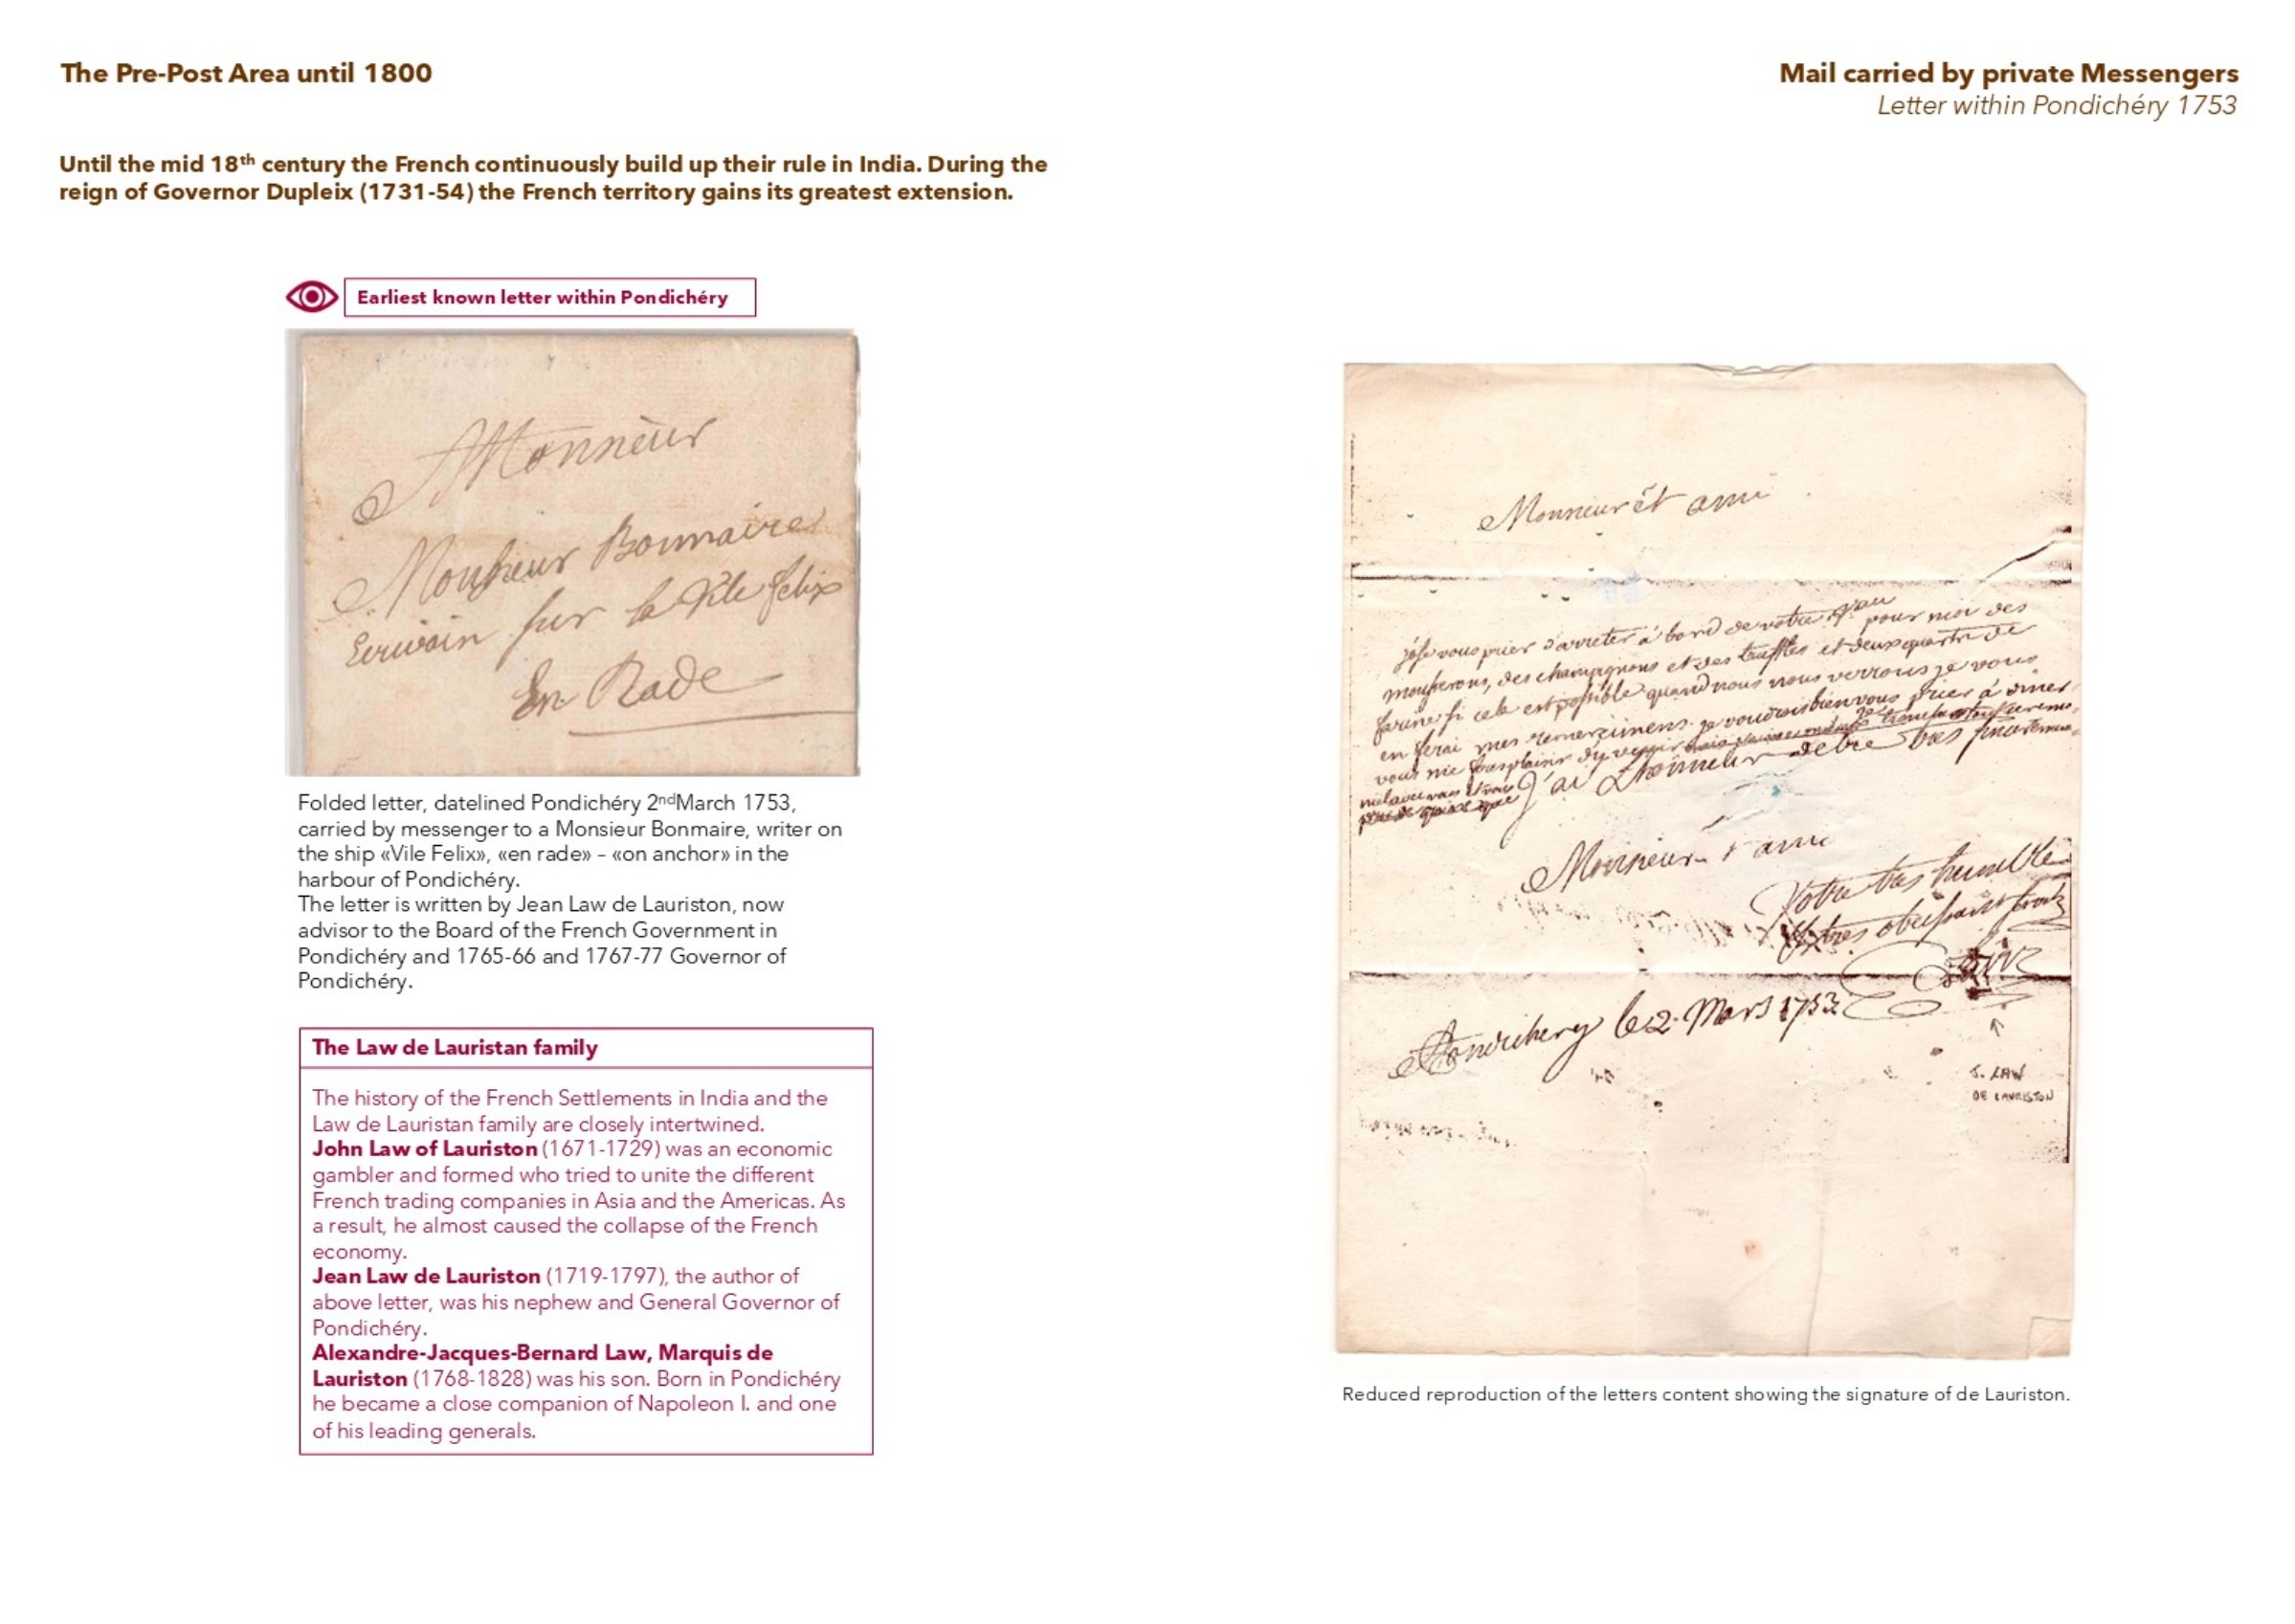 The Pre-Post Area until 1800
Mail carried by private Messengers
Letter within Pondichéry 1753
Until the mid 18th century the French continuously build up their rule in India. During the
reign of Governor Dupleix (1731-54) the French territory gains its greatest extension.
Earliest known letter within Pondichéry
Monsieur
Monsieur Bonmaire
Ecrivain sur la Vile felix
En Rade
Folded letter, datelined Pondichéry 2ndMarch 1753,
carried by messenger to a Monsieur Bonmaire, writer on
the ship «Vile Felix», «en rade» – «on anchor» in the
harbour of Pondichéry.
The letter is written by Jean Law de Lauriston, now
advisor to the Board of the French Government in
Pondichéry and 1765-66 and 1767-77 Governor of
Pondichéry.
The Law de Lauristan family
The history of the French Settlements in India and the
Law de Lauristan family are closely intertwined.
John Law of Lauriston (1671-1729) was an economic
gambler and formed who tried to unite the different
French trading companies in Asia and the Americas. As
a result, he almost caused the collapse of the French
economy.
Jean Law de Lauriston (1719-1797), the author of
above letter, was his nephew and General Governor of
Pondichéry.
Alexandre-Jacques-Bernard Law, Marquis de
Lauriston (1768-1828) was his son. Born in Pondichéry
he became a close companion of Napoleon I. and one
of his leading generals.
Monsieur et ami
j'ose vous prier d'arreter à bord de votre pour moi des
mousserons, des champignons et des truffles et deux quarts de
farine si cela est possible quand nous nous verrons je vous
en ferai mes remerciments. je voudrois bien vous prier à diner
vous me
J'ai L'honneur detre tres
Monsieur ami
Votre tres humble
tres obeissant
Pondichery le 2. Mars 1753
J. LAW
DE LAURISTON
Reduced reproduction of the letters content showing the signature of de Lauriston.